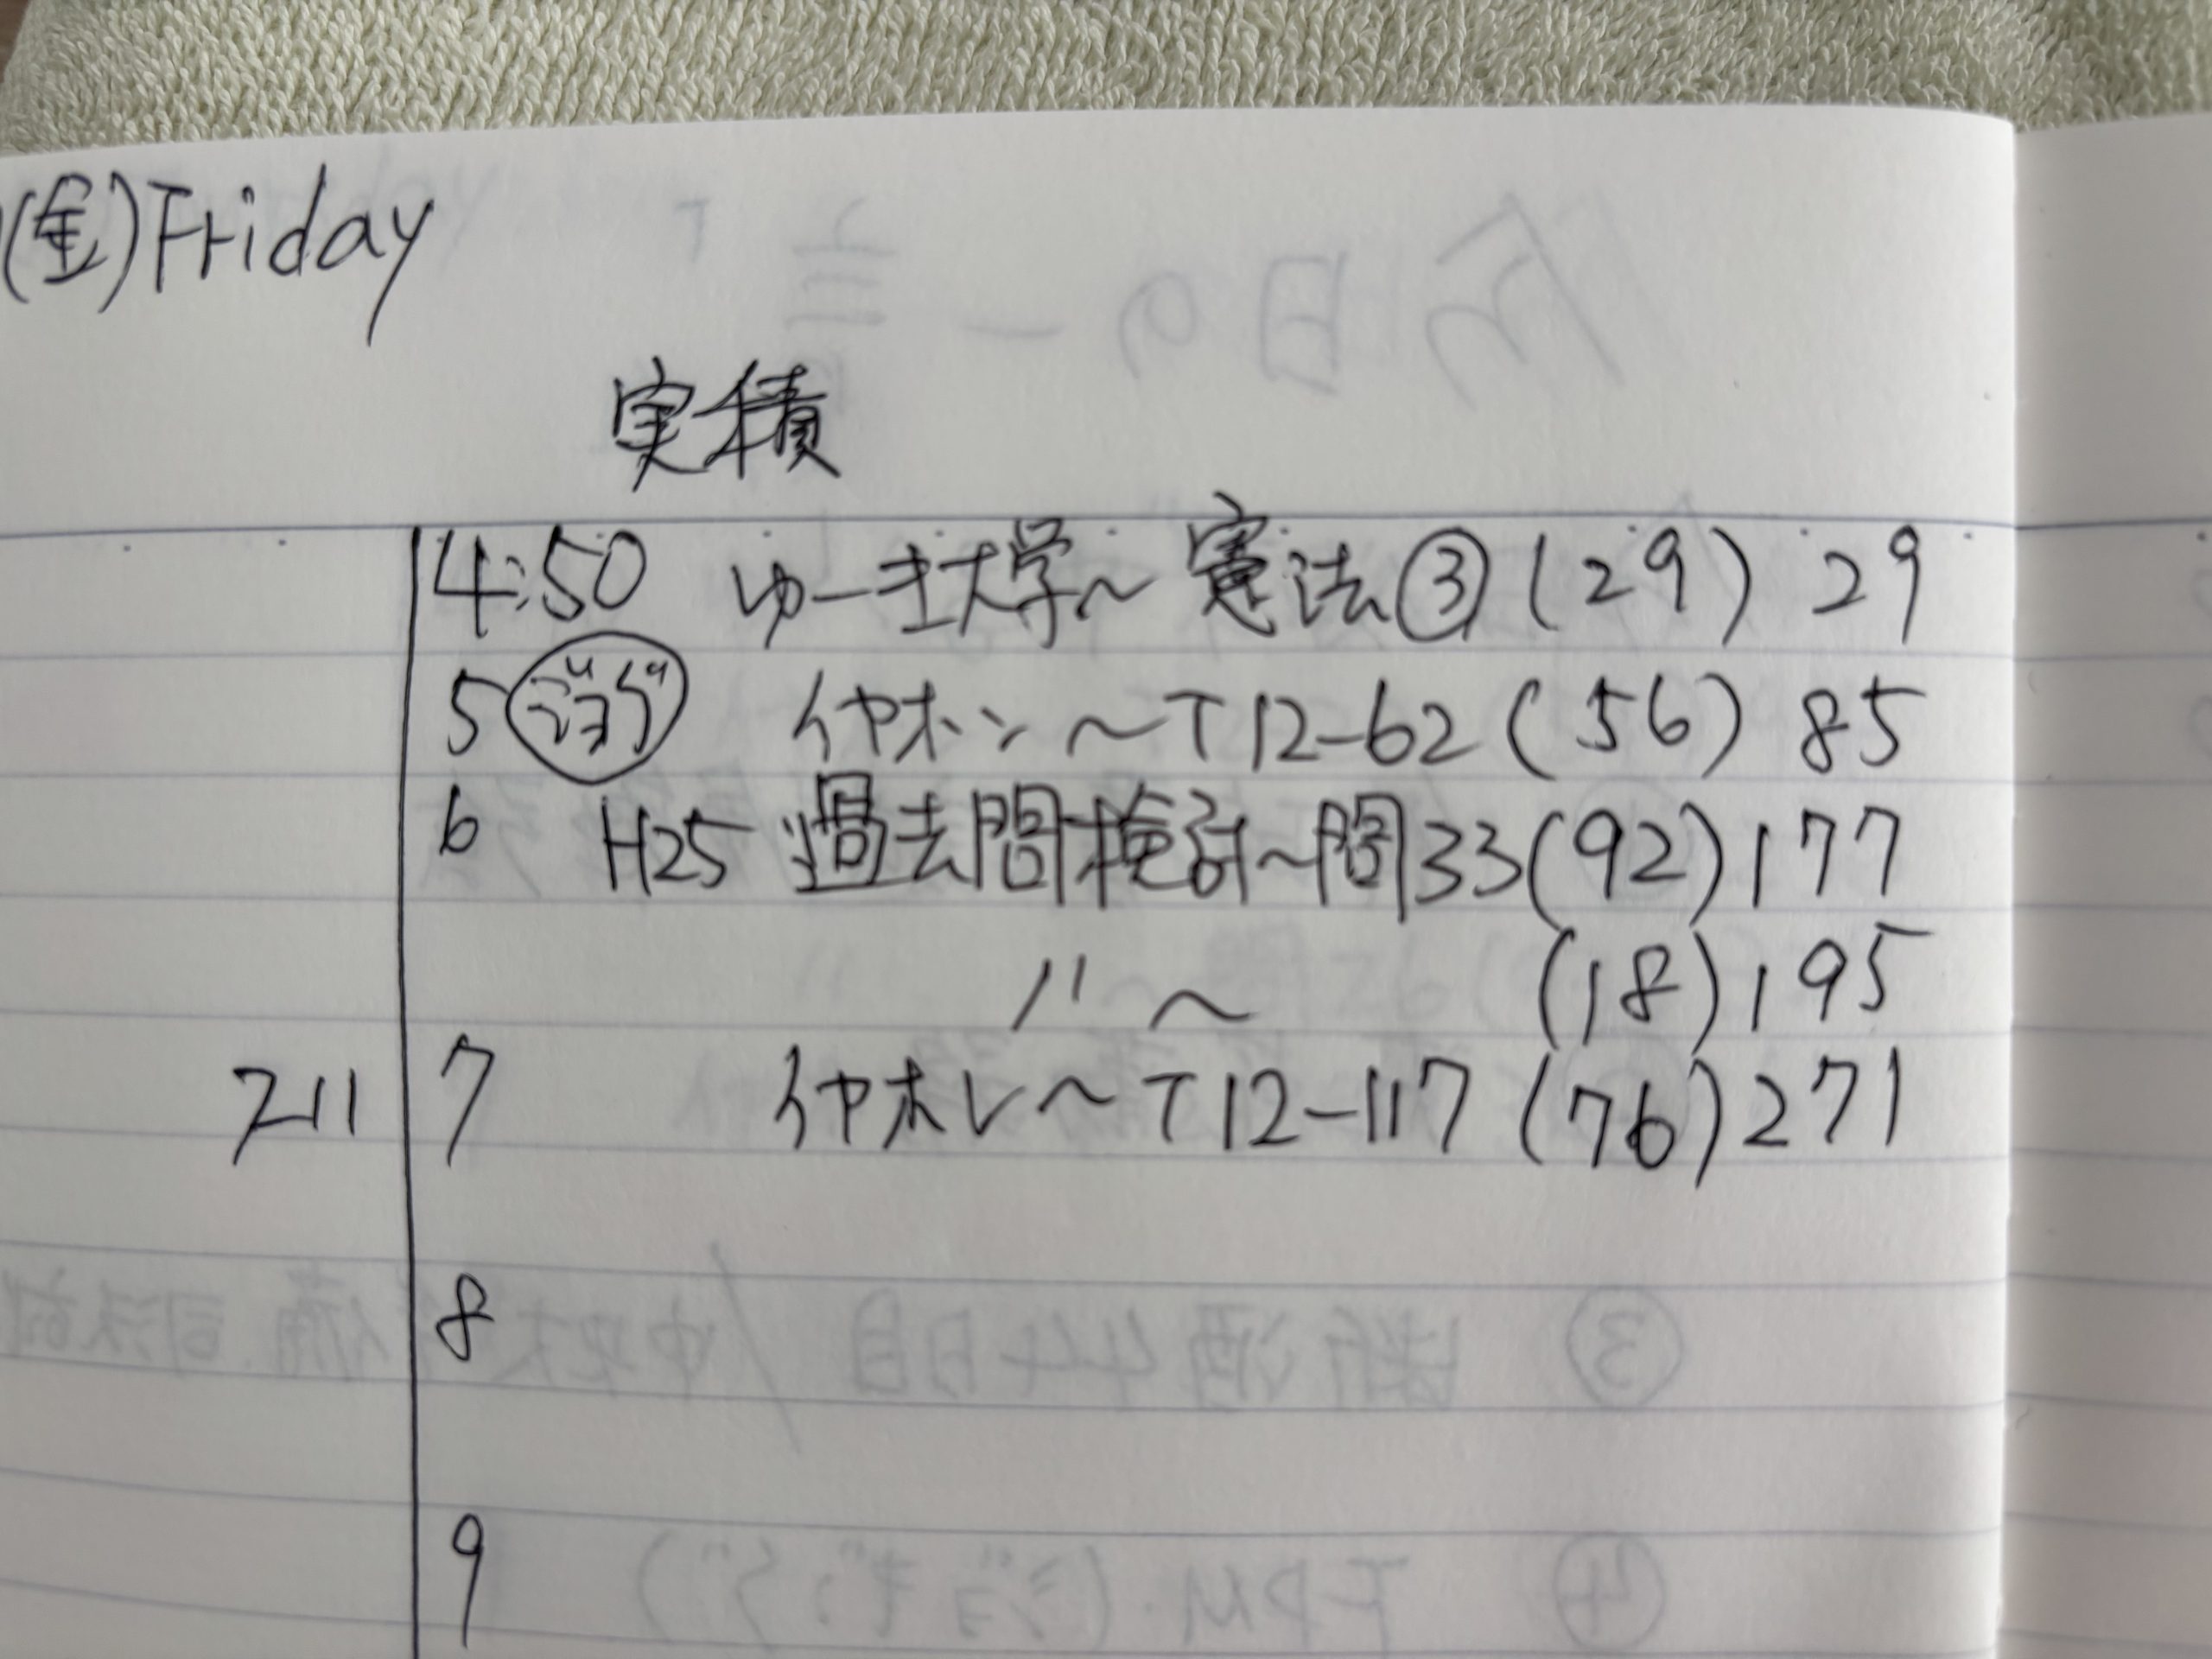 (金)Friday
実積
4:50 ゆーき大学〜憲法③(29) 29
5 ジョグ イヤホン〜T12-62(56) 85
6 H25 過去問検討〜問33(92)177
〃 〜 (18)195
211 7 イヤホン〜T12-117(76)271
8
9